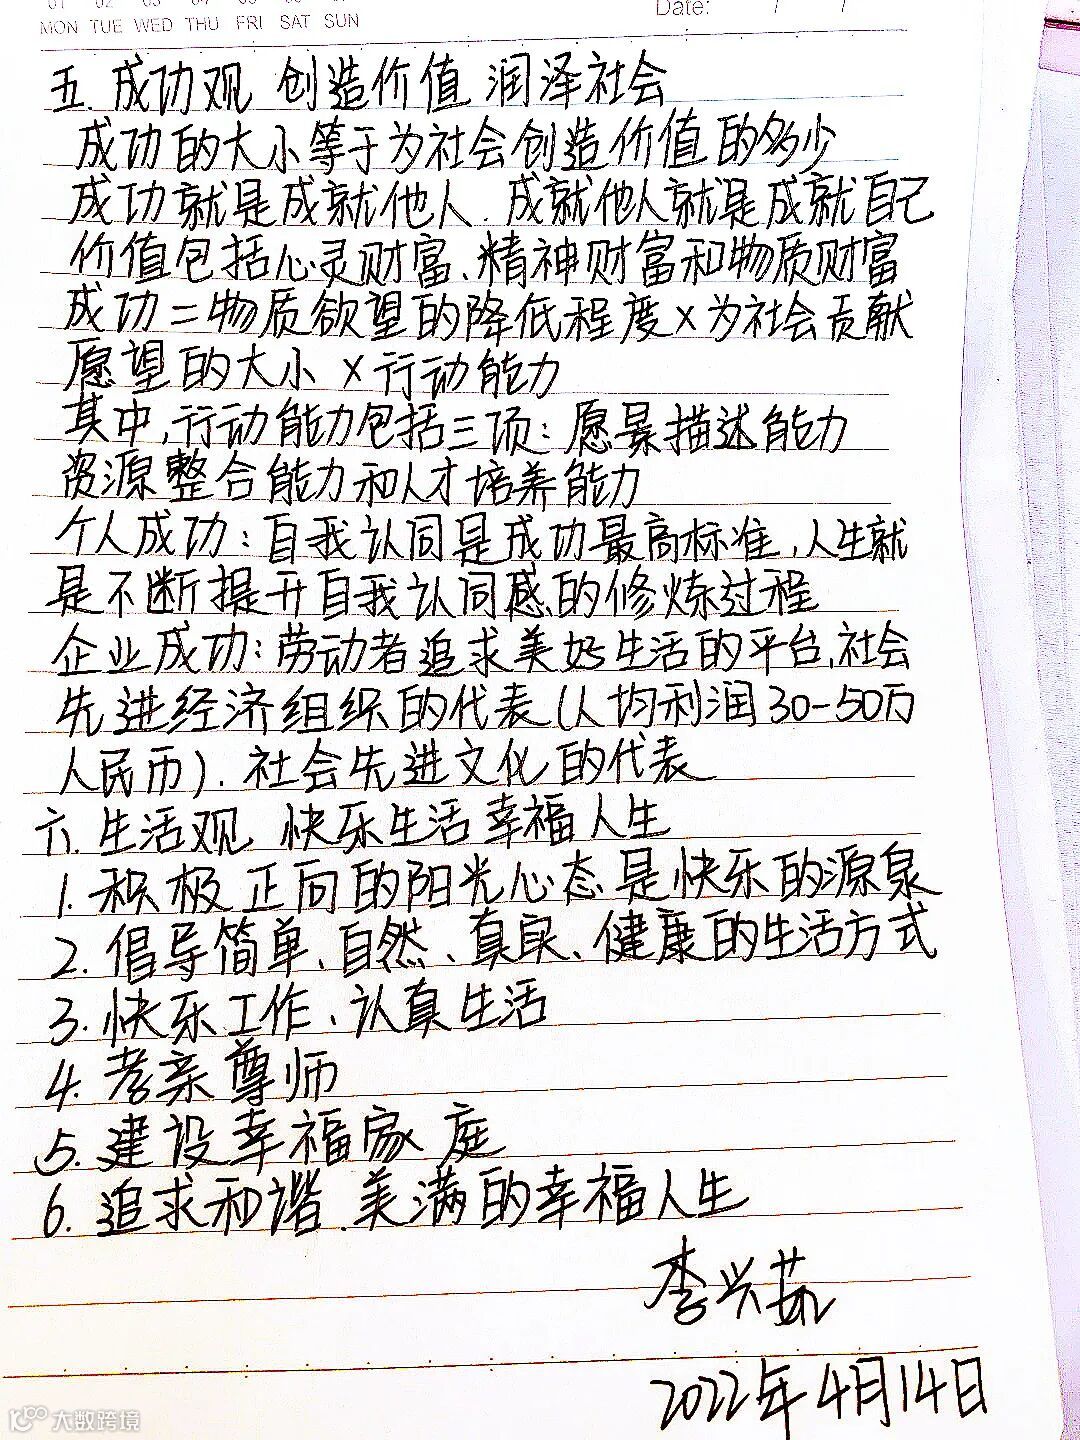 MON TUE WED THU FRI SAT SUN
Date: / /
五.成功观 创造价值 润泽社会
成功的大小等于为社会创造价值的多少
成功就是成就他人.成就他人就是成就自己
价值包括心灵财富、精神财富和物质财富
成功=物质欲望的降低程度×为社会贡献
愿望的大小×行动能力
其中,行动能力包括三项:愿景描述能力
资源整合能力和人才培养能力
个人成功:自我认同是成功最高标准,人生就
是不断提升自我认同感的修炼过程
企业成功:劳动者追求美好生活的平台,社会
先进经济组织的代表(人均利润30-50万
人民币).社会先进文化的代表
六.生活观 快乐生活 幸福人生
1.积极正向的阳光心态是快乐的源泉
2.倡导简单、自然、真实、健康的生活方式
3.快乐工作、认真生活
4.孝亲尊师
5.建设幸福家庭
6.追求和谐.美满的幸福人生
李兴茹
2022年4月14日
大数跨境